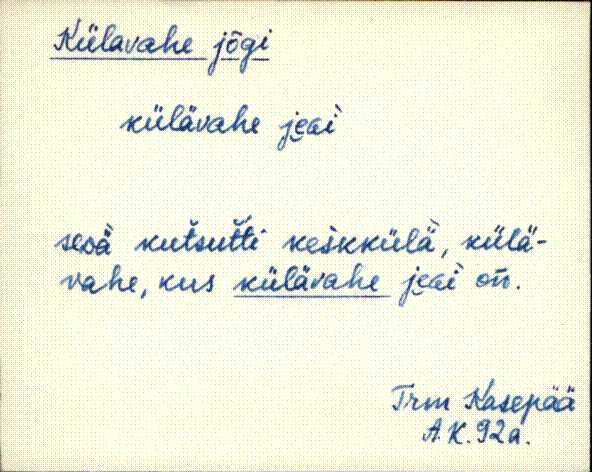 Külavahe jõgi
külävahe je̮ɢì
seᴅà kut́sut́ti keśkkülä̀, külä-
vahe, kus külävahe je̮ɢì oń.
Trm Kasepää
A.K. 92a.